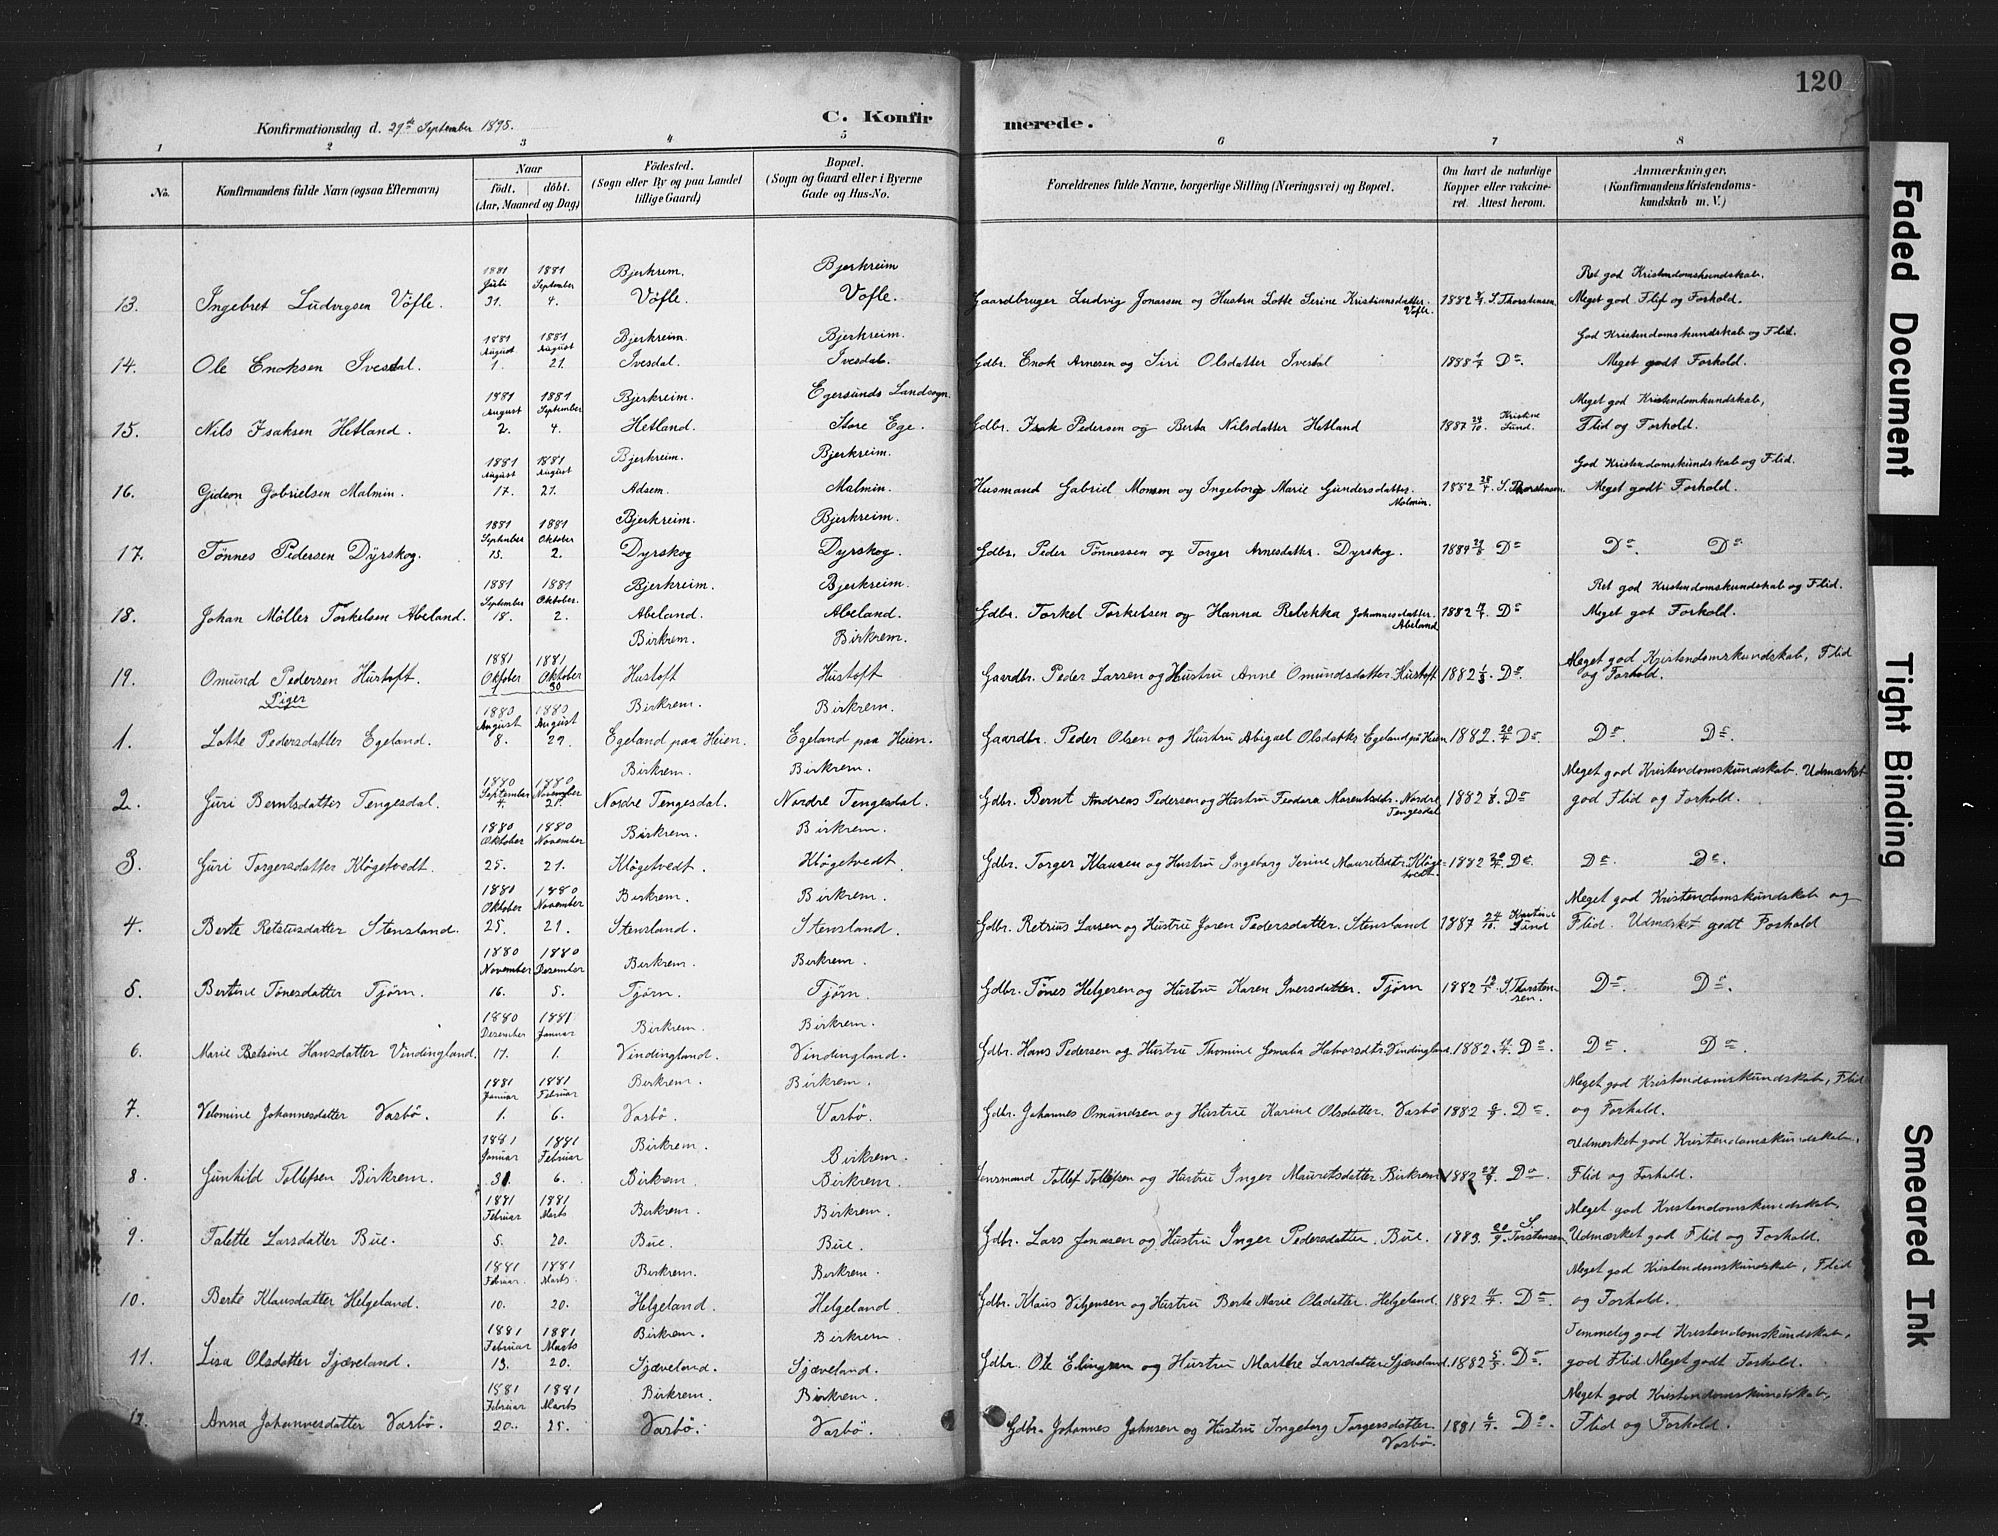 120
C. Konfirmerede.
Konfirmationsdag d. 29de September 1895.
1 2 3 4 5 6 7 8
No. Konfirmandens fulde Navn (ogsaa Efternavn) Naar födt. döbt. (Aar, Maaned og Dag) Födested. (Sogn eller By og paa Landet tillige Gaard) Bopæl. (Sogn og Gaard eller i Byerne Gade og Hus-No. Forældrenes fulde Navne, borgerlige Stilling (Næringsvei) og Bopæl. Om havt de naturlige Kopper eller vakcineret. Attest herom. Anmærkninger. (Konfirmandens Kristendomskundskab m. V.)
13. Ingebret Ludvigsen Vöfle. 1881 Juli 31. 1881 September 4. Bjerkrem. Vöfle. Bjerkreim Vofle. Gaardbruger Ludvig Jonassen og Hustru Lotte Serine Kristiansdatter Vöfle. 1882 S. Thorstensen. Ret god Kristendomskundskab. Meget god Flid og Forhold.
14. Ole Enoksen Ivesdal. 1881 August 1. 1881 August 21. Bjerkreim. Ivesdal. Bjerkreim. Ivesdal. Gdbr. Enok Arnesen og Siri Olsdatter Ivesdal 1888 Do God Kristendomskundskab og Flid. Meget godt Forhold.
15. Nils Isaksen Hetland. 1881 August 2. 1881 September 4. Bjerkreim. Hetland. Egersunds Landsogn. Store Ege. Gdbr. Isak Pedersen og Berta Nilsdatter Hetland 1887 24/10. Kristine Lund. Meget god Kristendomkundskab, Flid og Forhold.
16. Gideon Gabrielsen Malmin. 1881 August 17. 1881 August 21. Bjerkreim. Adsem. Bjerkreim. Malmin. Husmand Gabriel Monsen og Ingeborg Marie Gundersdatter Malmin. 1882 S. Thorstensen. God Kristendomskundskab og Flid. Meget godt Forhold.
17. Tønnes Pedersen Dyrskog. 1881 September 15. 1881 Oktober 2. Bjerkreim. Dyrskog Bjerkreim. Dyrskog. Gdbr. Peder Tönnessen og Torger Arnesdatter. Dyrskog. 1884 Do Do. Do.
18. Johan Möller Torkelsen Abeland. 1881 September 18. 1881 Oktober. 2. Bjerkreim. Abeland. Bjerkreim. Abeland. Gdbr. Torkel Torkelsen og Hanna Rebekka Johannesdatter. Abeland 1882 Do Ret god Kristendomskundskab og Flid. Meget got Forhold.
19. Omund Pedersen Hustoft. 1881 Oktober 1881 Oktober 30 Birkrem. Hustoft Birkrem. Hustoft Gaardbr. Peder Larsen og Hustru Anne Omundsdatter Hustoft 1882 1/3 Do. Meget god Kristendomskundskab, Flid og Forhold.
Piger
1. Lotte Pedersdatter Egeland. 1880 August 8. 1880 August 29. Birkrem. Egeland paa Heien. Birkrem. Egeland paa Heien. Gaardbr. Peder Olsen og Hustru Abigael Olsdatter Egeland på Heien 1882. Do Do. Do.
2. Guri Berntsdatter Tengesdal. 1880 September 4. 1880 November 21. Birkrem. Nordre Tengesdal. Birkrem. Nordre Tengesdal. Gdbr. Bernt Andreas Pedersen og Hustru Feodora Marentsdtr. Nordre Tengesdal 1882 1/8. Do Meget god Kristendomskundskab. Udmærket god Flid og Forhold.
3. Guri Torgersdatter Kløgetvedt. 1880 Oktober 25. 1880 November 21. Birkrem. Kløgetvedt. Birkrem. Kløgetvedt. Gdbr. Torger Klausen og Hustru Ingeborg Serine Mauritsdtr. Kløgetvedt. 1882 Do. Do. Do.
4. Berte Retsiusdatter Stensland. 1880 Oktober 25. 1880 November 21. Birkrem. Stensland. Birkrem. Stensland. Gdbr. Retsius Larsen og Hustru Joren Pedersdatter. Stensland 1887 24/10. Kristine Lund Meget god Kristendomskundskab og Flid. Udmærket godt Forhold
5. Bertine Tönesdatter Tjörn. 1880 November 16. 1880 Desember 5. Birkrem. Tjörn. Birkrem. Tjörn. Gdbr. Tönes Helgesen og Hustru Karen Iversdatter. Tjörn 1882 S. Thorstensen. Do. Do.
6. Marie Betsine Hansdatter Vindingland. 1880 Desember 17. 1881 Januar 1. Birkrem. Vindingland. Birkrem. Vindingland. Gdbr. Hans Pedersen og Hustru Thomine Jomalia Halvorsdtr. Vindingland. 1882. Do. Do. Do.
7. Velomine Johannesdatter Vasbö. 1881 Januar 1. 1881 Februar 6. Birkrem. Vasbö. Birkrem. Vasbö. Gdbr. Johannes Omundsen og Hustru Karine Olsdatter. Vasbö 1882 Do. Meget god Kristendomskundskab, Flid og Forhold.
8. Gunhild Tollefsen Birkrem. 1881 Januar 31. 1881 Februar 6. Birkrem. Birkrem. Birkrem. Birkrem. Lensmand Tollef Tollefsen og Hustru Inger Mauritsdatter Birkrem 1882 Do. Udmerket god Kristendomskundskab, Flid og Forhold.
9. Talette Larsdatter Bue. 1881 Februar 5. 1881 Marts 20. Birkrem. Bue. Birkrem. Bue. Gdbr. Lars Jonassen og Hustru Inger Pedersdatter. Bue. 1883. 20/9 S. Torstensen. Meget god Kristendomskundskab, Udmærket god Flid og Forhold.
10. Berte Klausdatter Helgeland. 1881 Februar. 10. 1881 Marts. 20. Birkrem. Helgeland. Birkrem. Helgeland. Gdbr. Klaus Vilgensen og Hustru Berte Marie Olsdatter. Helgeland. 1882 Do. Meget god Kristendomskundskab, Flid og Forhold.
11. Lisa Olsdatter Sjæveland. 1881 Februar 13. 1881 Marts 20. Birkrem. Sjæveland. Birkrem. Sjæveland. Gdbr. Ole Elingsen og Hustru Marthe Larsdatter Sjæveland. 1882 Do. Temmelig god Kristendomskundskab, god Flid Meget godt Forhold.
12. Anna Johannesdatter Vasbö. 1881 Februar 20. 1881 Marts. 25. Birkrem. Vasbö. Birkrem. Vasbö. Gdbr. Johannes Johnsen og Hustru Ingeborg Torgersdatter. Vasbö. 1881 Do. Meget god Kristendomskundskab, Flid og Forhold.
Faded Document
Tight Binding
Smeared Ink